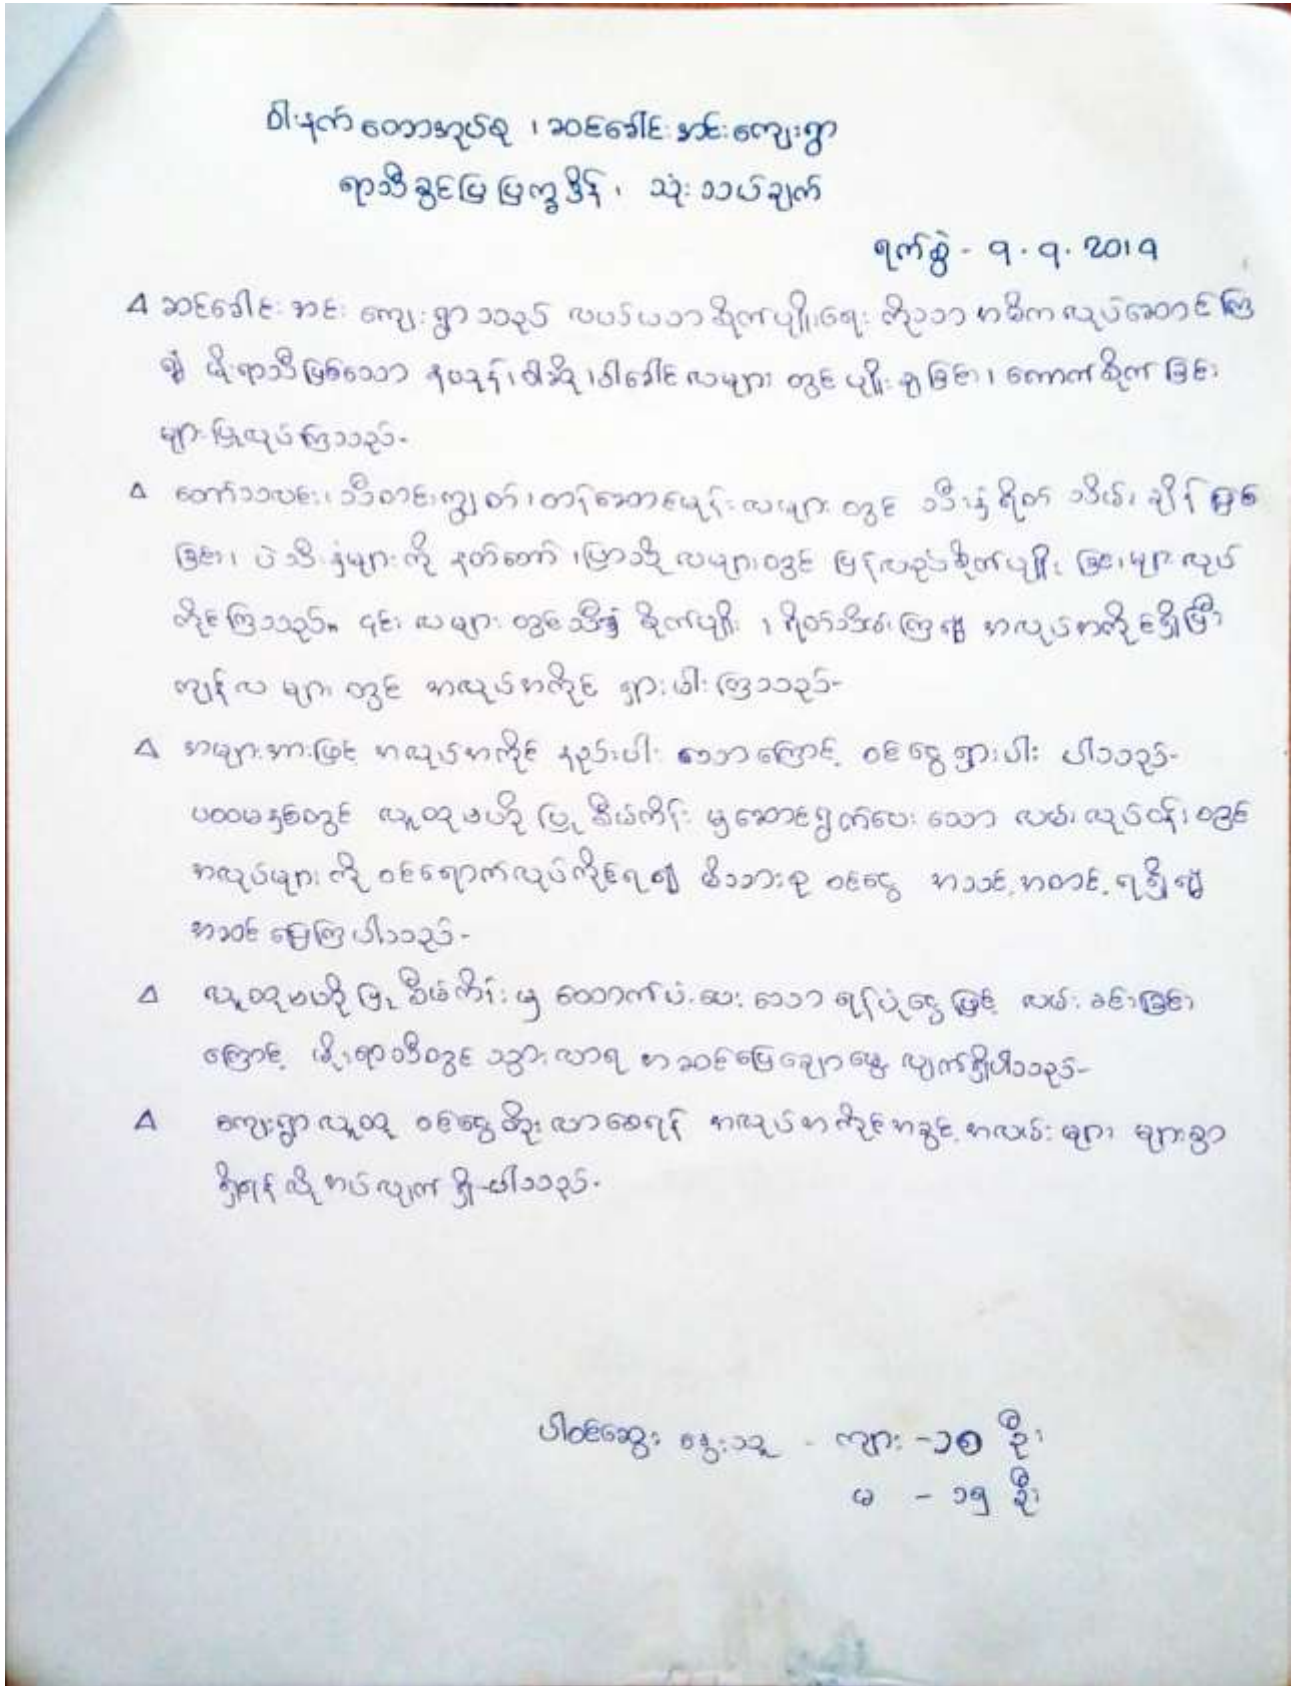 ဝါးနက်တောအုပ်စု ၊ ဆင်ခေါင်းအင်းကျေးရွာ
ရာသီခွင်ပြ ပြက္ခဒိန် ၊ သုံးသပ်ချက်
ရက်စွဲ - ၅.၅.2019
∆ ဆင်ခေါင်းအင်း ကျေးရွာသည် လယ်ယာစိုက်ပျိုးရေး ကိုသာ အဓိကလုပ်ဆောင်ကြ
၍ မိုးရာသီဖြစ်သော နယုန်၊ ဝါဆို၊ ဝါခေါင်လများ တွင် ပျိုးချခြင်း၊ ကောက်စိုက်ခြင်း
များပြုလုပ်ကြသည်-
∆ တော်သလင်း၊ သီတင်းကျွတ်၊ တန်ဆောင်မုန်းလများ တွင် သီးနှံရိတ် သိမ်းချိန်ဖြစ်
ခြင်း၊ ပဲသီးနှံများကို နတ်တော်၊ ပြာသို လများတွင် ပြန်လည်စိုက်ပျိုး ခြင်းများလုပ်
ကိုင်ကြသည်။ ၎င်း လများ တွင်သီးနှံ စိုက်ပျိုး ၊ ရိတ်သိမ်းကြ၍ အလုပ်အကိုင်ရှိပြီး
ကျန်လ များ တွင် အလုပ်အကိုင် ရှားပါးကြသည်-
∆ အများအားဖြင့် အလုပ်အကိုင် နည်းပါး သောကြောင့် ဝင်ငွေရှားပါး ပါသည်-
ပထမနှစ်တွင် လူထုဗဟိုပြု စီမံကိန်း မှဆောင်ရွက်ပေး သော လမ်းလုပ်ငန်းတွင်
အလုပ်များ ကို ဝင်ရောက်လုပ်ကိုင်ရ၍ မိသားစု ဝင်ငွေ အသင့်အတင့်ရရှိ၍
အဆင်ပြေကြပါသည်-
∆ လူထုဗဟိုပြု စီမံကိန်းမှ ထောက်ပံ့ပေးသော ရန်ပုံငွေဖြင့် လမ်းခင်းခြင်း
ကြောင့် မိုးရာသီတွင် သွားလာရ အဆင်ပြေချောမွေ့ လျက်ရှိပါသည်-
∆ ကျေးရွာလူထု ဝင်ငွေတိုးလာစေရန် အလုပ်အကိုင်အခွင့်အလမ်းများ များစွာ
ရှိရန် လိုအပ်လျက် ရှိပါသည်-
ပါဝင်ဆွေးနွေးသူ - ကျား - ၁၈ ဦး
မ - ၁၅ ဦး